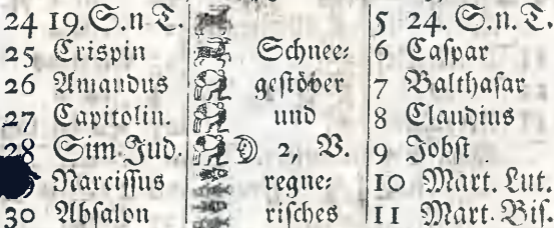 24 19. S. n T. 5 24. S. n. T.
25 Crispin Schnee= 6 Caspar
26 Amandus gestöber 7 Balthasar
27 Capitolin. und 8 Claudius
28 Sim. Jud. ☽ 2, V. 9 Jobst
Narcissus regne= 10 Mart. Lut.
30 Absalon risches 11 Mart. Bis.